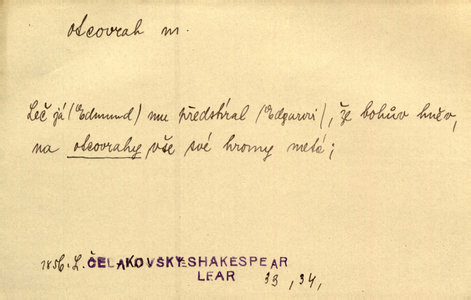 otcovrah m.
Leč já (Edmund) mu předstíral (Edgarovi), že bohův hněv,
na otcovrahy vše své hromy metá;
1856. L. ČELAKOVSKÝ-SHAKESPEAR
LEAR 33, 34,